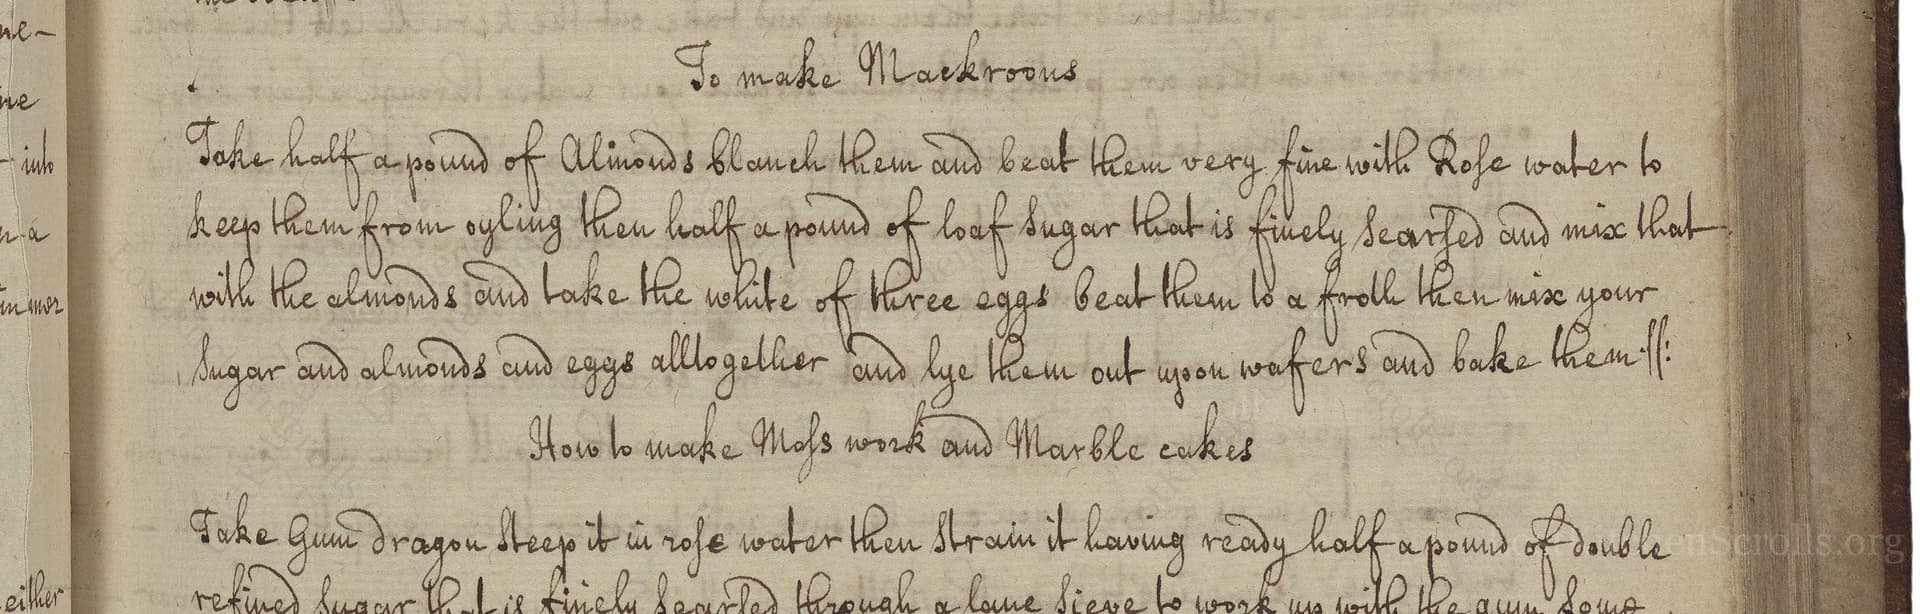 To make Mackroons
Take half a pound of Almonds blanch them and beat them very fine with Rose water to
keep them from oyling then half a pound of loaf sugar that is finely searsed and mix that
with the almonds and take the white of three eggs beat them to a froth then mix your
sugar and almonds and eggs alltogether and lye them out upon wafers and bake them
How to make Moss work and Marble cakes
Take Gum dragon steep it in rose water then strain it having ready half a pound of double
refined sugar that is finely searsed through a laune sieve to work up with the gum some
into
either
enScrolls.org